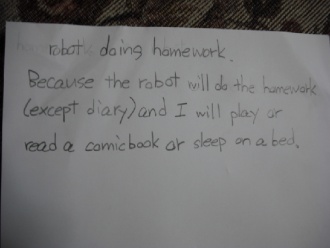 robot doing homework.
Because the robot will do the homework
(except diary) and I will play or
read a comicbook or sleep on a bed.